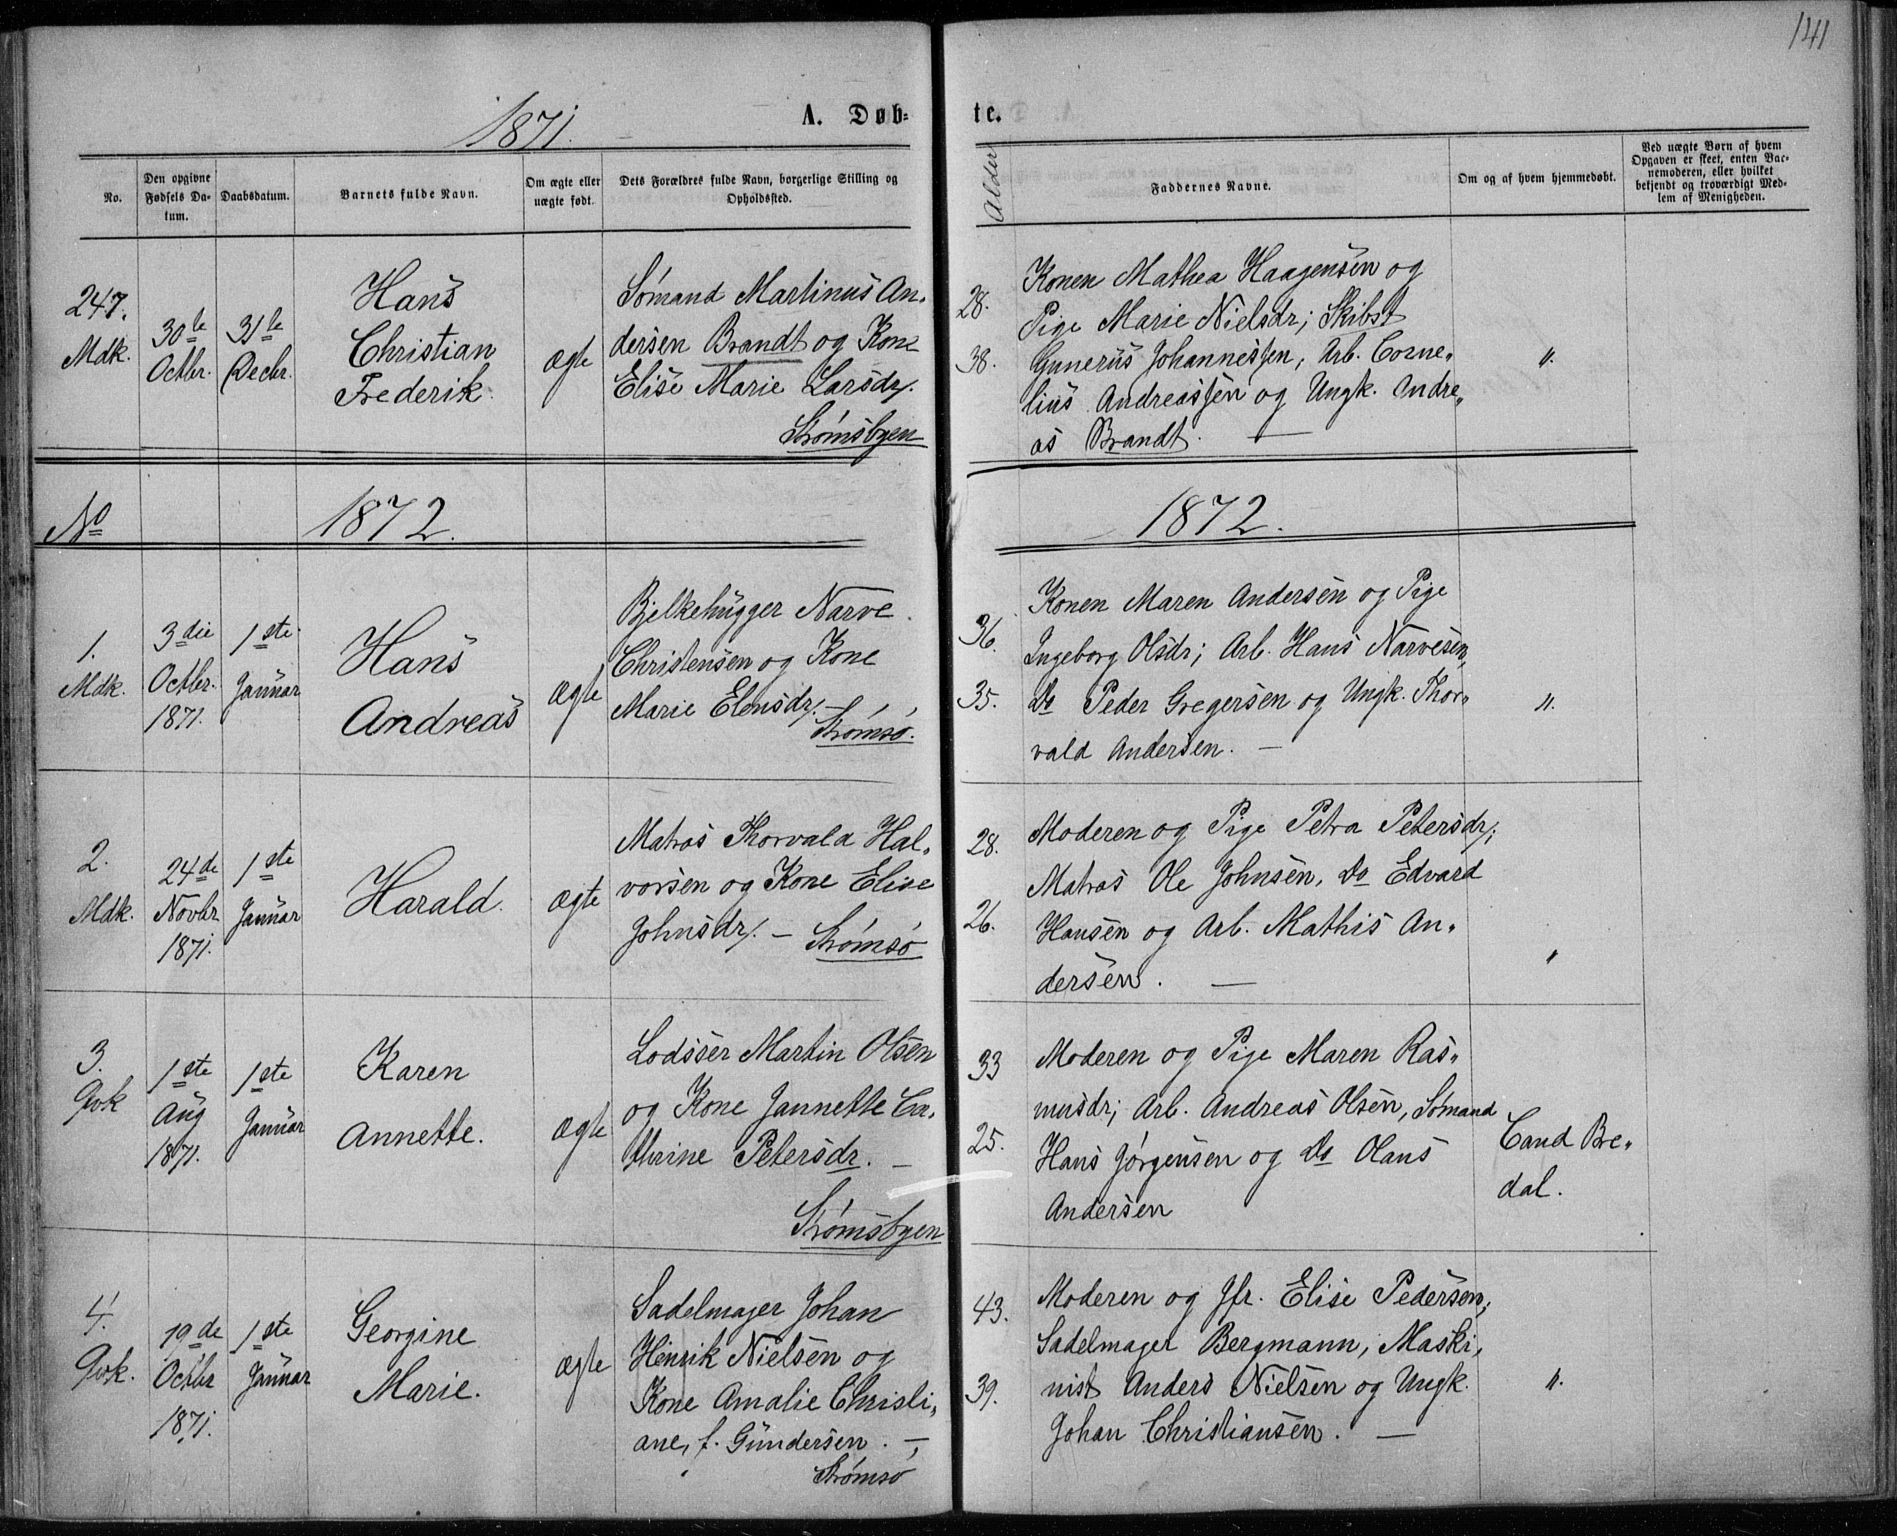 141
1871.
A. Døb-
te.
No.
Den opgivne
Fødsels Da-
tum.
Daabsdatum.
Barnets fulde Navn.
Om ægte eller
uægte født.
Dets Forældres fulde Navn, borgerlige Stilling og
Opholdssted.
Alder
Faddernes Navne.
Om og af hvem hjemmedøbt.
Ved uægte Børn af hvem
Opgaven er skeet, enten Bar-
nemoderen, eller hvilket
bekjendt og troværdigt Med-
lem af Menigheden.
247.
Mdk.
30te
Octbr.
31te
Decbr.
Hans
Christian
Frederik
ægte
Sømand Martinus An-
dersen Brandt og Kone
Elise Marie Larsdr.
Strømsbyen
28.
38.
Konen Mathea Haagensen og
Pige Marie Nielsdr; Skibst
Gunerus Johannessen, Arb. Corne-
lius Andreassen og Ungk. Andre-
as Brandt. —
"
No
1872.
1872.
1.
Mdk.
3die
Octbr.
1871.
1ste
Januar
Hans
Andreas
ægte
Bjelkehugger Narve
Christensen og Kone
Marie Elensdr. —
Strømsø.
36.
35.
Konen Maren Andersen og Pige
Ingeborg Olsdr; Arb. Hans Narvesen,
Do Peder Gregersen og Ungk. Thor-
vald Andersen. —
"
2.
Mdk.
24de
Novbr
1871.
1ste
Januar
Harald.
ægte
Matros Thorvald Hal-
vorsen og Kone Elise
Johnsdr. — Strømsø
28.
26.
Moderen og Pige Petra Petersdr;
Matros Ole Johnsen, Do Edvard
Hansen og Arb. Mathis An-
dersen. —
"
3.
Qvk
1ste
Aug
1871.
1ste
Januar
Karen
Annette.
ægte
Lodsser Martin Olsen
og Kone Jannette Ca-
thrine Petersdr. —
Strømsbyen
33
25.
Moderen og Pige Maren Ras-
musdr; Arb. Andreas Olsen, Sømand
Hans Jørgensen og Do Olaus
Andersen
Cand Bre-
dal.
4.
Qvk.
19de
Octbr
1871.
1ste
Januar
Georgine
Marie.
ægte
Sadelmager Johan
Henrik Nielsen og
Kone Amalie Christi-
ane, f. Gundersen. —
Strømsø
43.
39.
Moderen og Jfr. Elise Pedersen;
Sadelmager Bergmann, Maski-
nist Anders Nielsen og Ungk.
Johan Christiansen. —
"